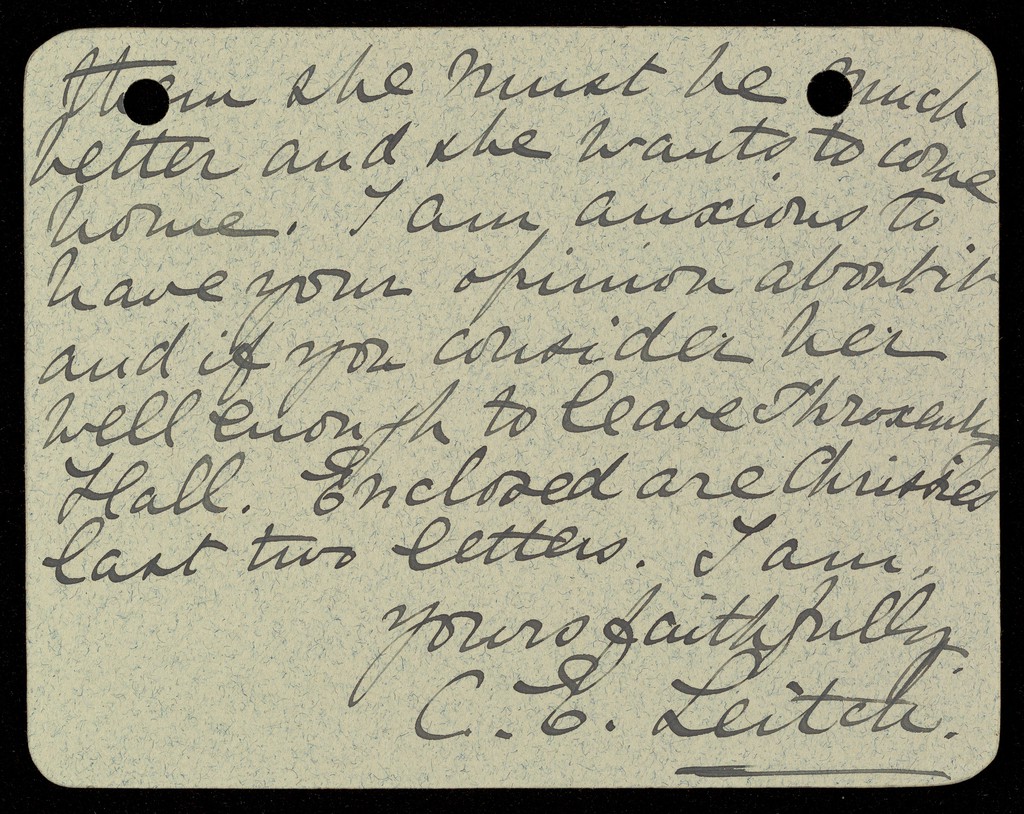 them she must be much
better and she wants to come
home. I am anxious to
have your opinion about it
and if you consider her
well enough to leave Throxenby
Hall. Enclosed are Chrissies
last two letters. I am,
yours faithfully.
C. E. Leitch.